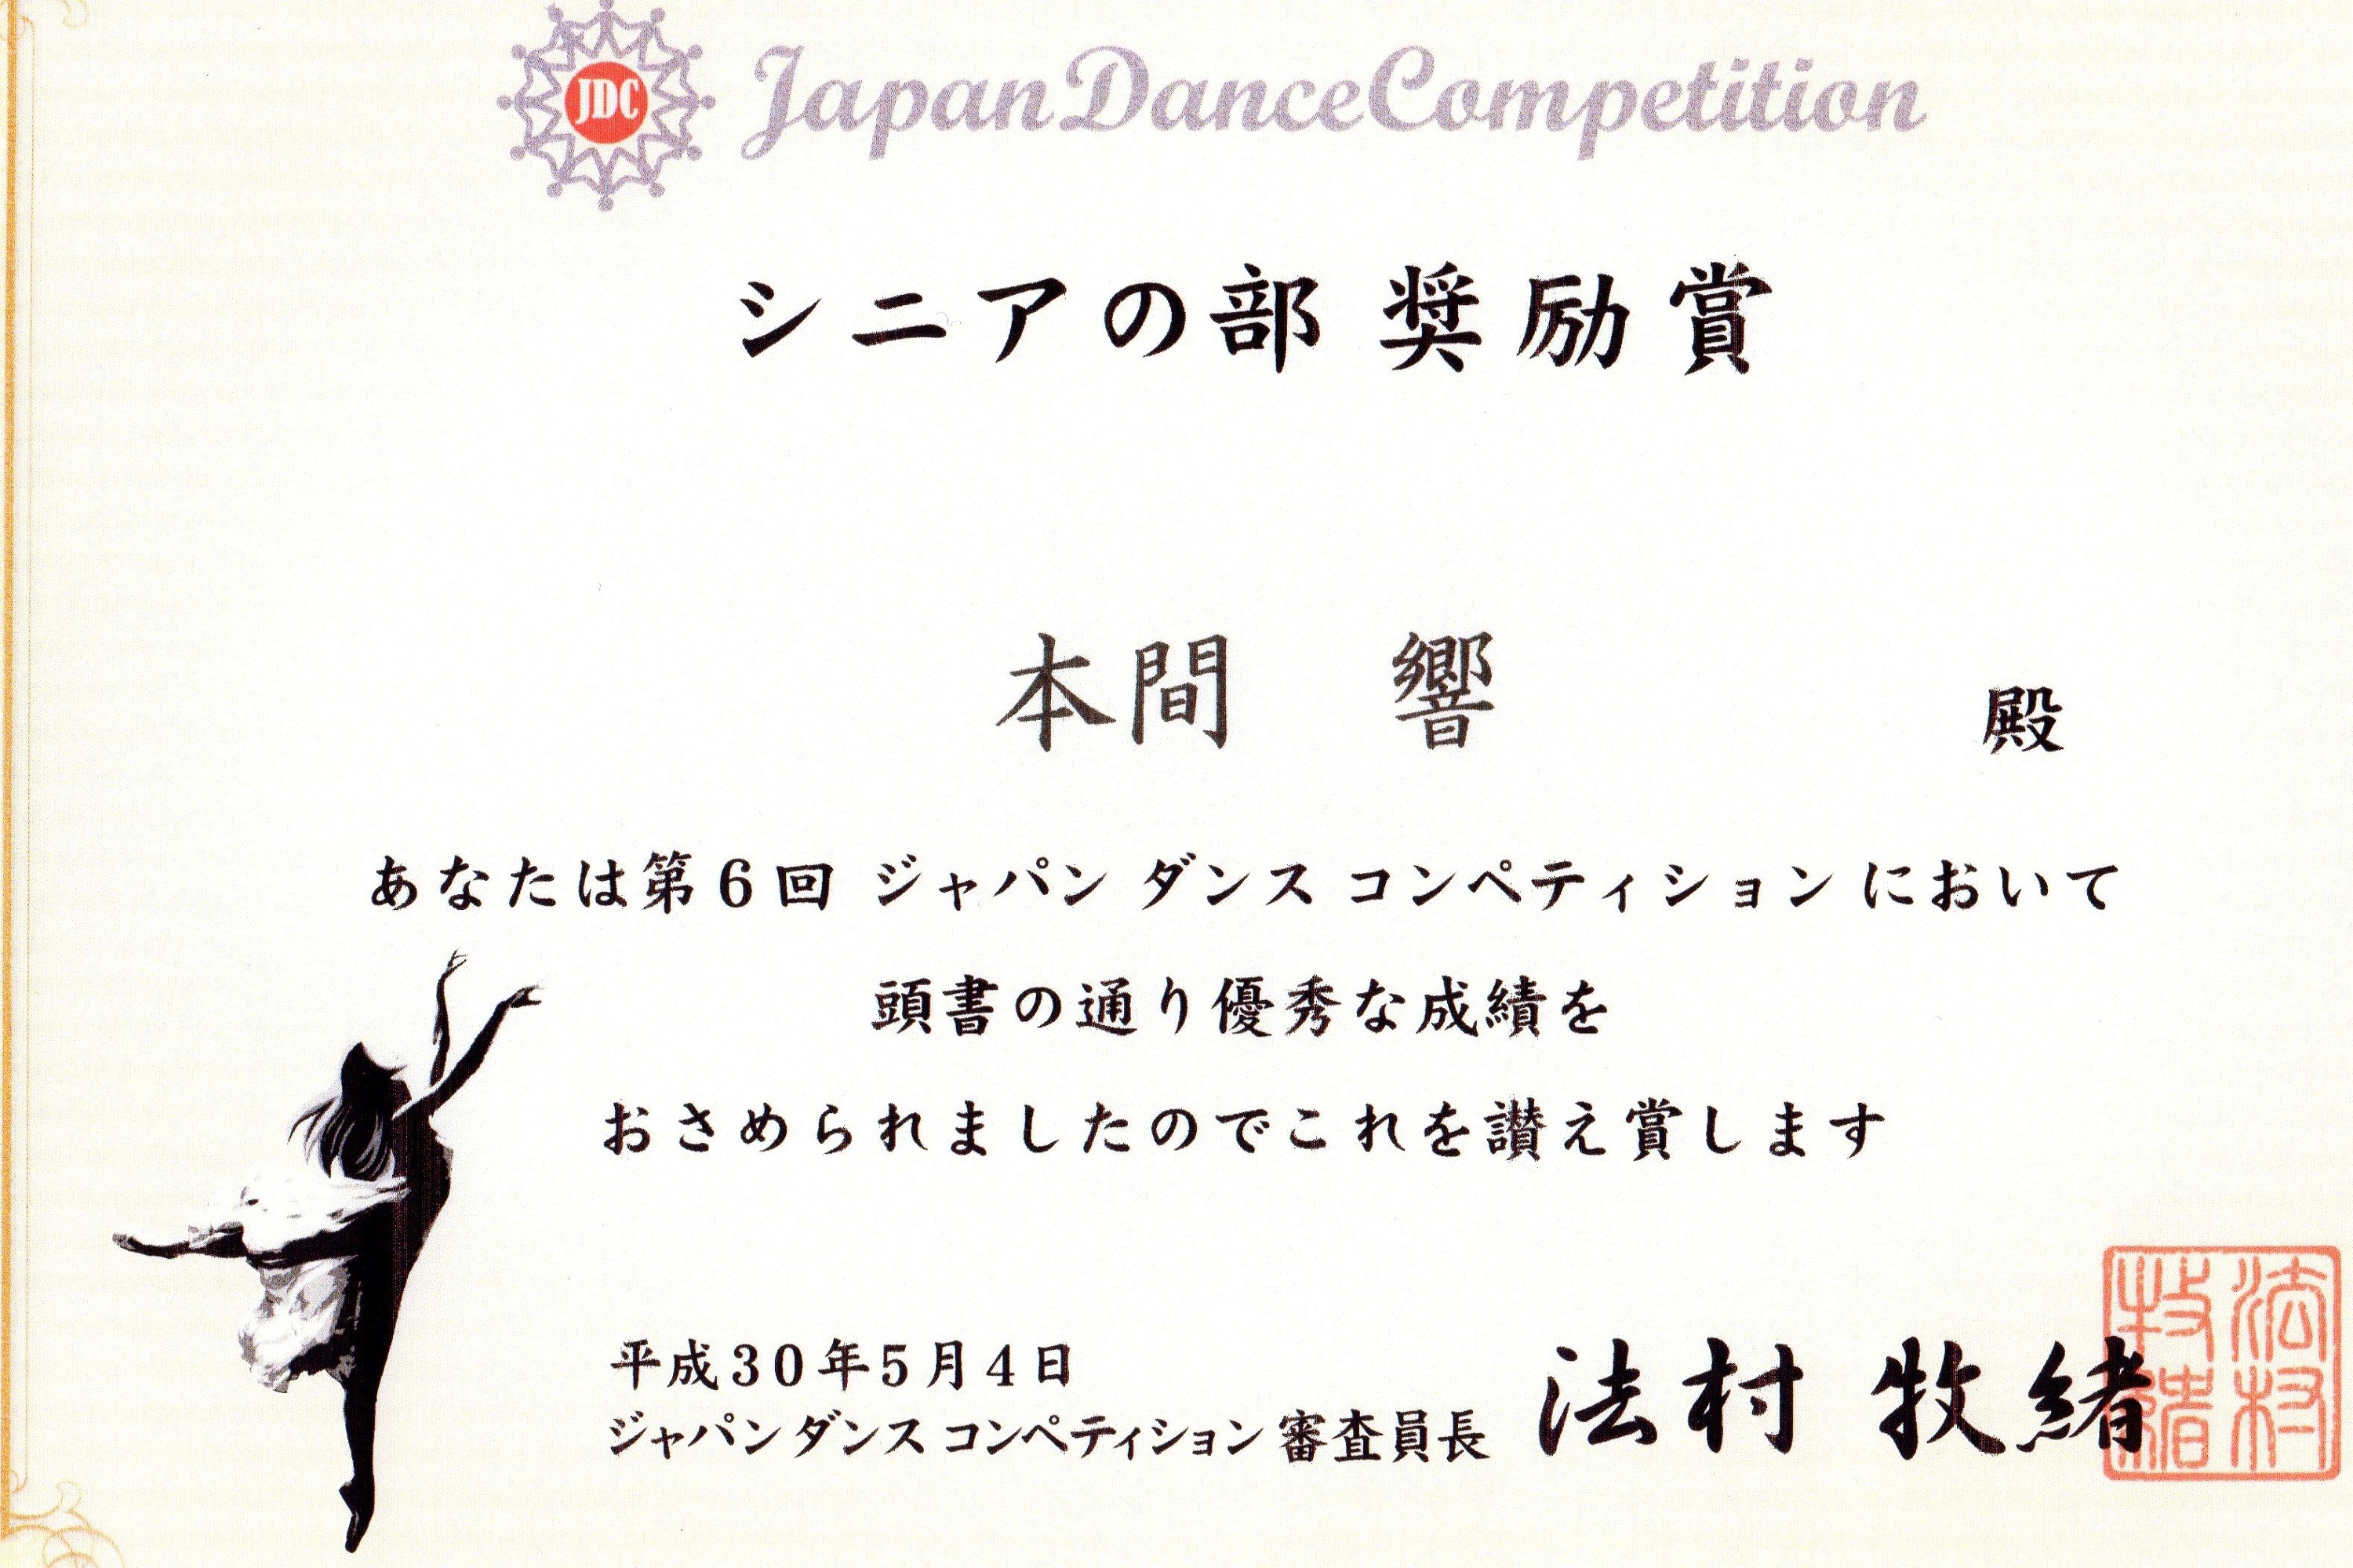 JDC JapanDanceCompetition
シニアの部 奨励賞
本間 響 殿
あなたは第6回 ジャパン ダンス コンペティション において
頭書の通り優秀な成績を
おさめられましたのでこれを讃え賞します
平成30年5月4日
ジャパン ダンス コンペティション 審査員長 法村 牧緒
法村牧緒